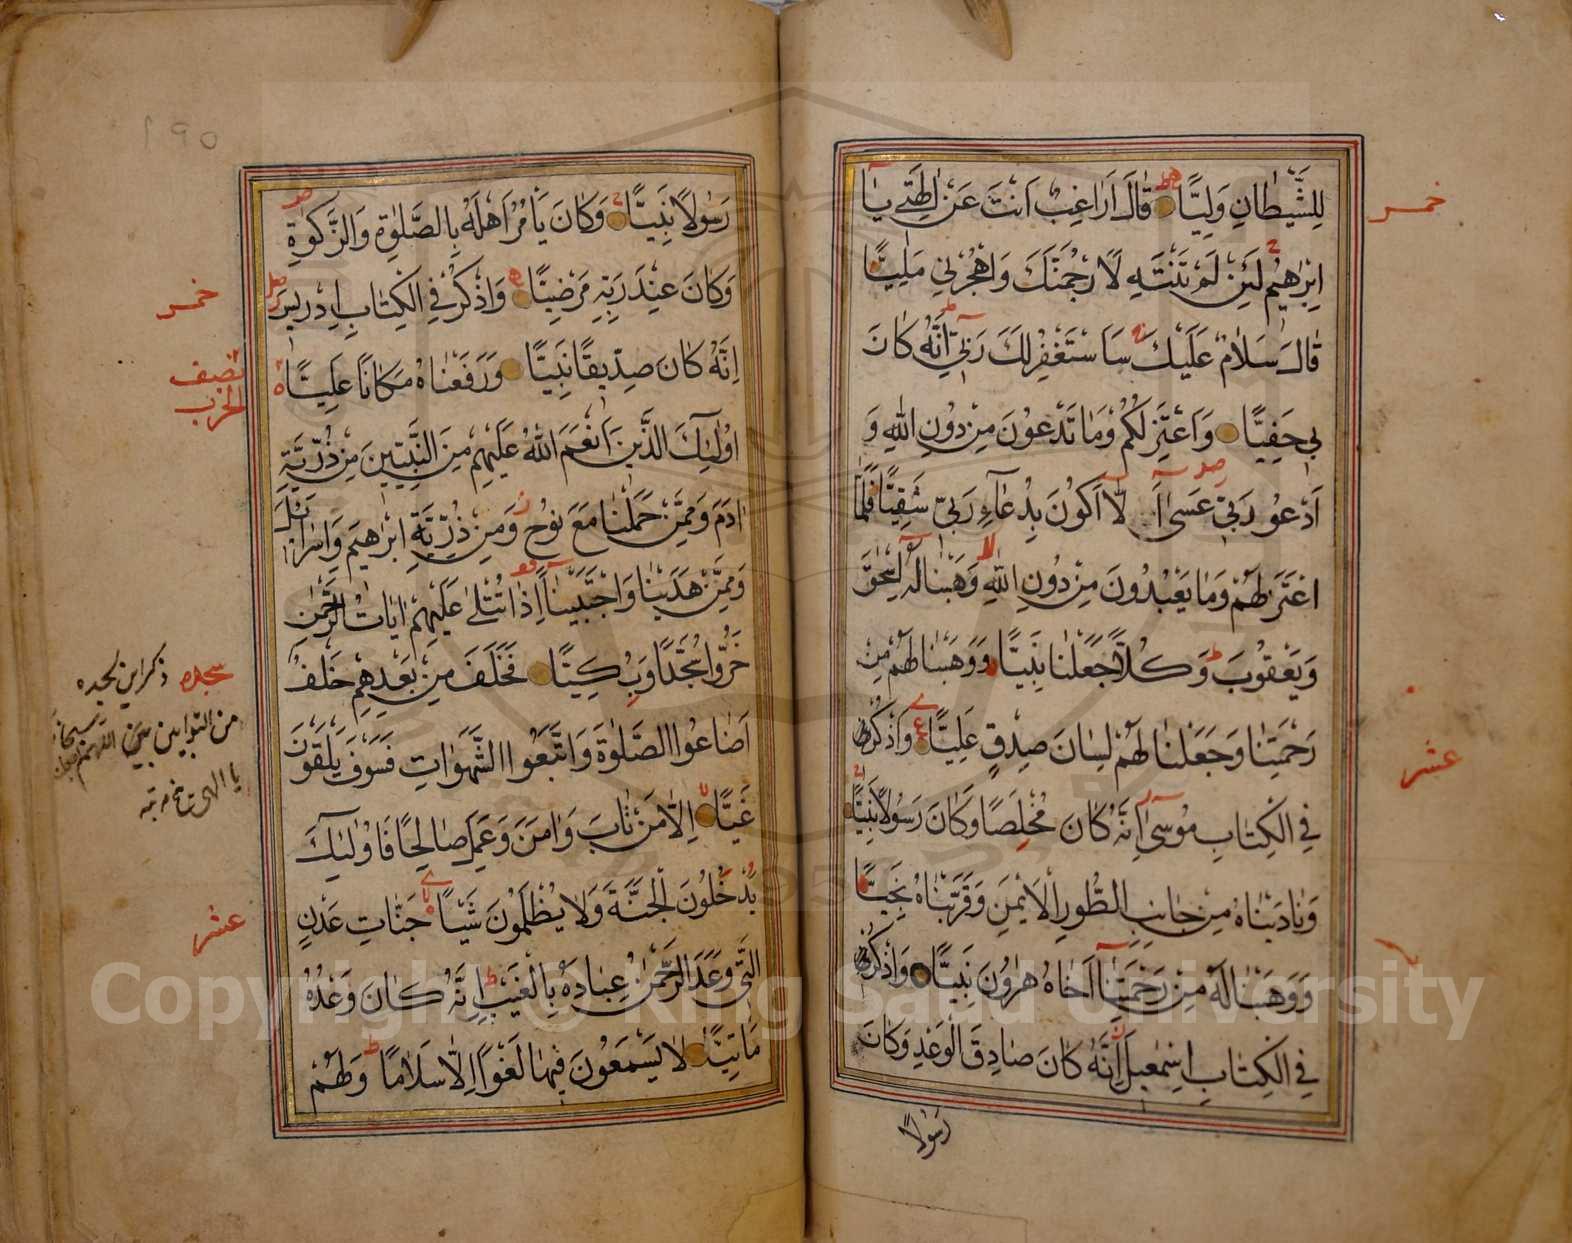 للشيطان وليا قال اراغب انت عن الهتي يا
ابرهيم لئن لم تنته لارجمنك واهجرني مليا
قال سلام عليك ساستغفر لك ربي انه كان
بي حفيا واعتزلكم وما تدعون من دون الله و
ادعو ربي عسى الا اكون بدعاء ربي شقيا فلما
اعتزلهم وما يعبدون من دون الله وهبنا له اسحق
ويعقوب وكلا جعلنا نبيا ووهبنا لهم من
رحمتنا وجعلنا لهم لسان صدق عليا واذكر
في الكتاب موسى انه كان مخلصا وكان رسولا نبيا
وناديناه من جانب الطور الايمن وقربناه نجيا
ووهبنا له من رحمتنا اخاه هرون نبيا واذكر
في الكتاب اسمعيل انه كان صادق الوعد وكان
رسولا
خمس
عشر
رسولا نبيا وكان يامر اهله بالصلوة والزكوة
وكان عند ربه مرضيا واذكر في الكتاب ادريس
انه كان صديقا نبيا ورفعناه مكانا عليا
اولئك الذين انعم الله عليهم من النبيين من ذرية
ادم وممن حملنا مع نوح ومن ذرية ابرهيم واسرائل
وممن هدينا واجتبينا اذا تتلى عليهم ايات الرحمن
خروا سجدا وبكيا فخلف من بعدهم خلف
اضاعوا الصلوة واتبعوا الشهوات فسوف يلقون
غيا الا من تاب وامن وعمل صالحا فاولئك
يدخلون الجنة ولا يظلمون شيا جنات عدن
التي وعد الرحمن عباده بالغيب انه كان وعده
ماتيا لا يسمعون فيها لغوا الا سلاما ولهم
خمس
نصف
الحزب
سجده
عشر
١٩٥
Copyright © King Saud University